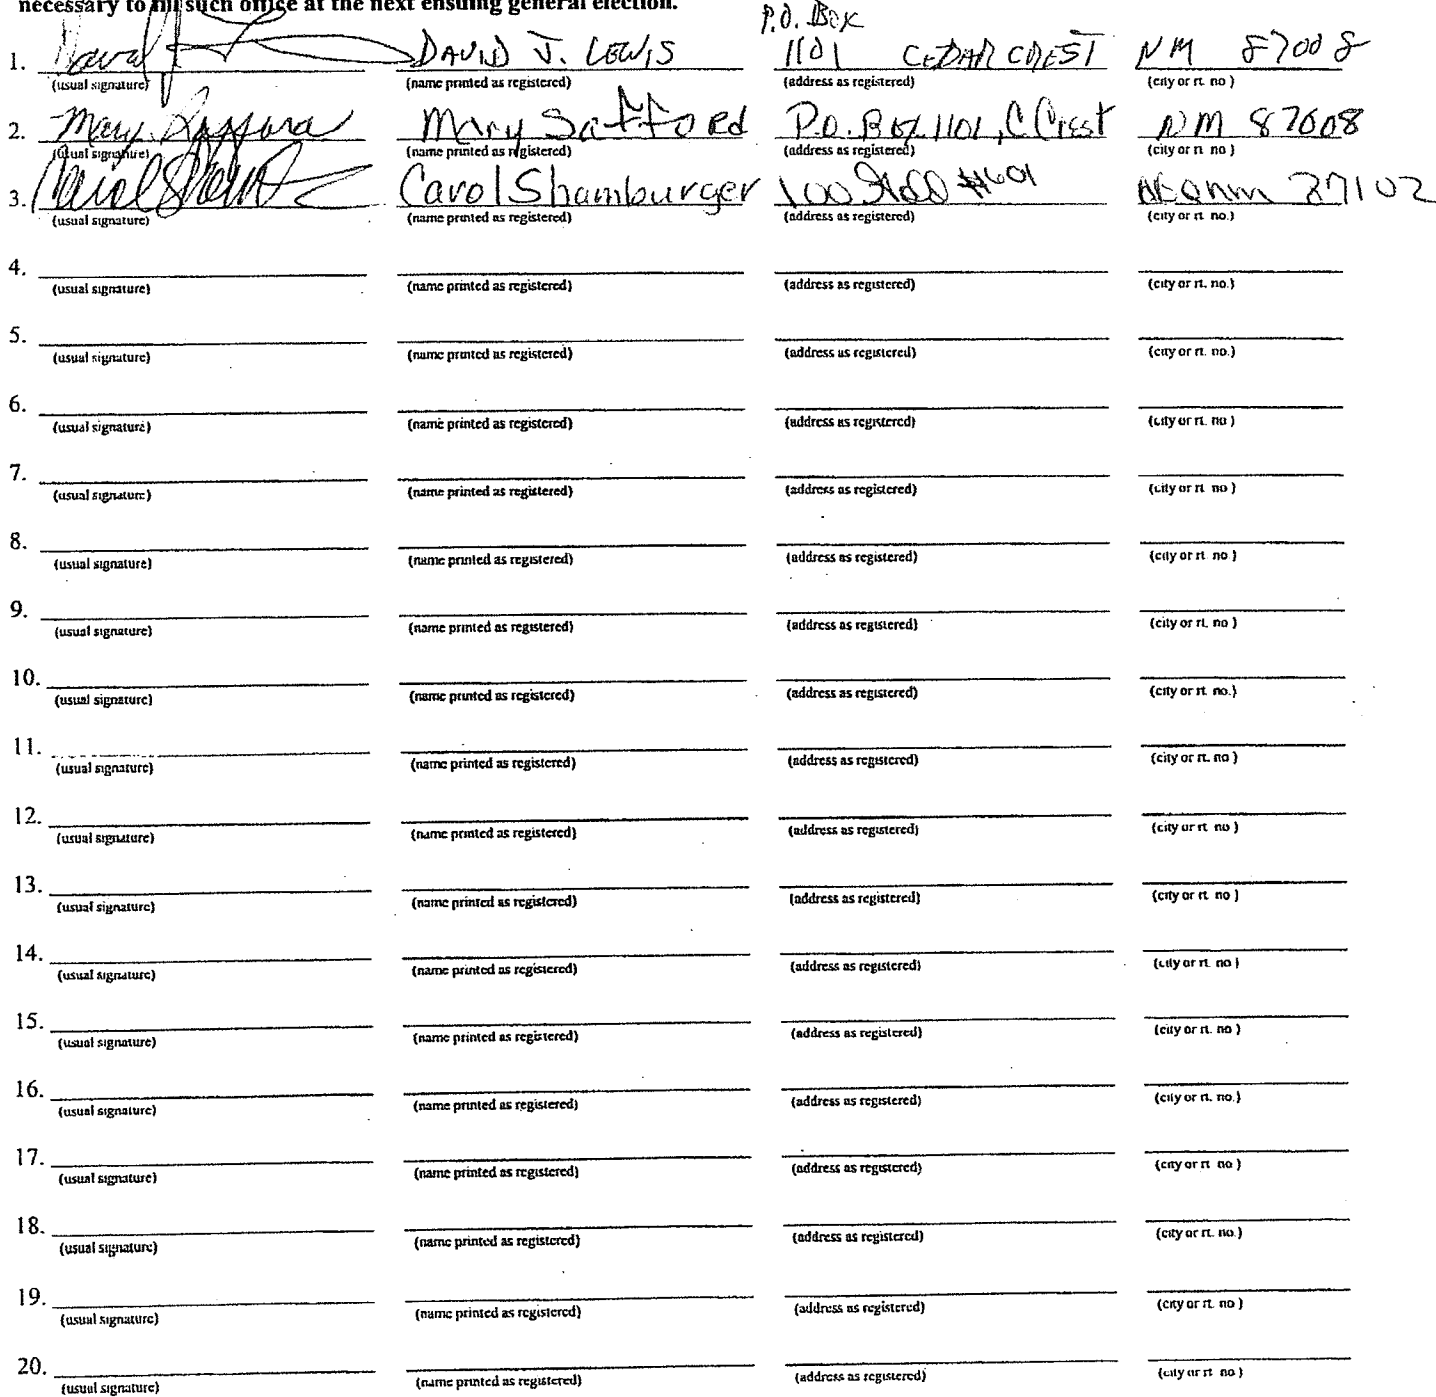 necessary to fill such office at the next ensuing general election.
P.O. Box
1. David J. DAVID J. LEWIS 1101 CEDAR CREST NM 87008
(usual signature) (name printed as registered) (address as registered) (city or rt. no.)
2. Mary Safford Mary Safford P.O. Box 1101, C Crest NM 87008
(usual signature) (name printed as registered) (address as registered) (city or rt. no.)
3. Carol Carol Shamburger 100 #601 87102
(usual signature) (name printed as registered) (address as registered) (city or rt. no.)
4.
(usual signature) (name printed as registered) (address as registered) (city or rt. no.)
5.
(usual signature) (name printed as registered) (address as registered) (city or rt. no.)
6.
(usual signature) (name printed as registered) (address as registered) (city or rt. no.)
7.
(usual signature) (name printed as registered) (address as registered) (city or rt. no.)
8.
(usual signature) (name printed as registered) (address as registered) (city or rt. no.)
9.
(usual signature) (name printed as registered) (address as registered) (city or rt. no.)
10.
(usual signature) (name printed as registered) (address as registered) (city or rt. no.)
11.
(usual signature) (name printed as registered) (address as registered) (city or rt. no.)
12.
(usual signature) (name printed as registered) (address as registered) (city or rt. no.)
13.
(usual signature) (name printed as registered) (address as registered) (city or rt. no.)
14.
(usual signature) (name printed as registered) (address as registered) (city or rt. no.)
15.
(usual signature) (name printed as registered) (address as registered) (city or rt. no.)
16.
(usual signature) (name printed as registered) (address as registered) (city or rt. no.)
17.
(usual signature) (name printed as registered) (address as registered) (city or rt. no.)
18.
(usual signature) (name printed as registered) (address as registered) (city or rt. no.)
19.
(usual signature) (name printed as registered) (address as registered) (city or rt. no.)
20.
(usual signature) (name printed as registered) (address as registered) (city or rt. no.)